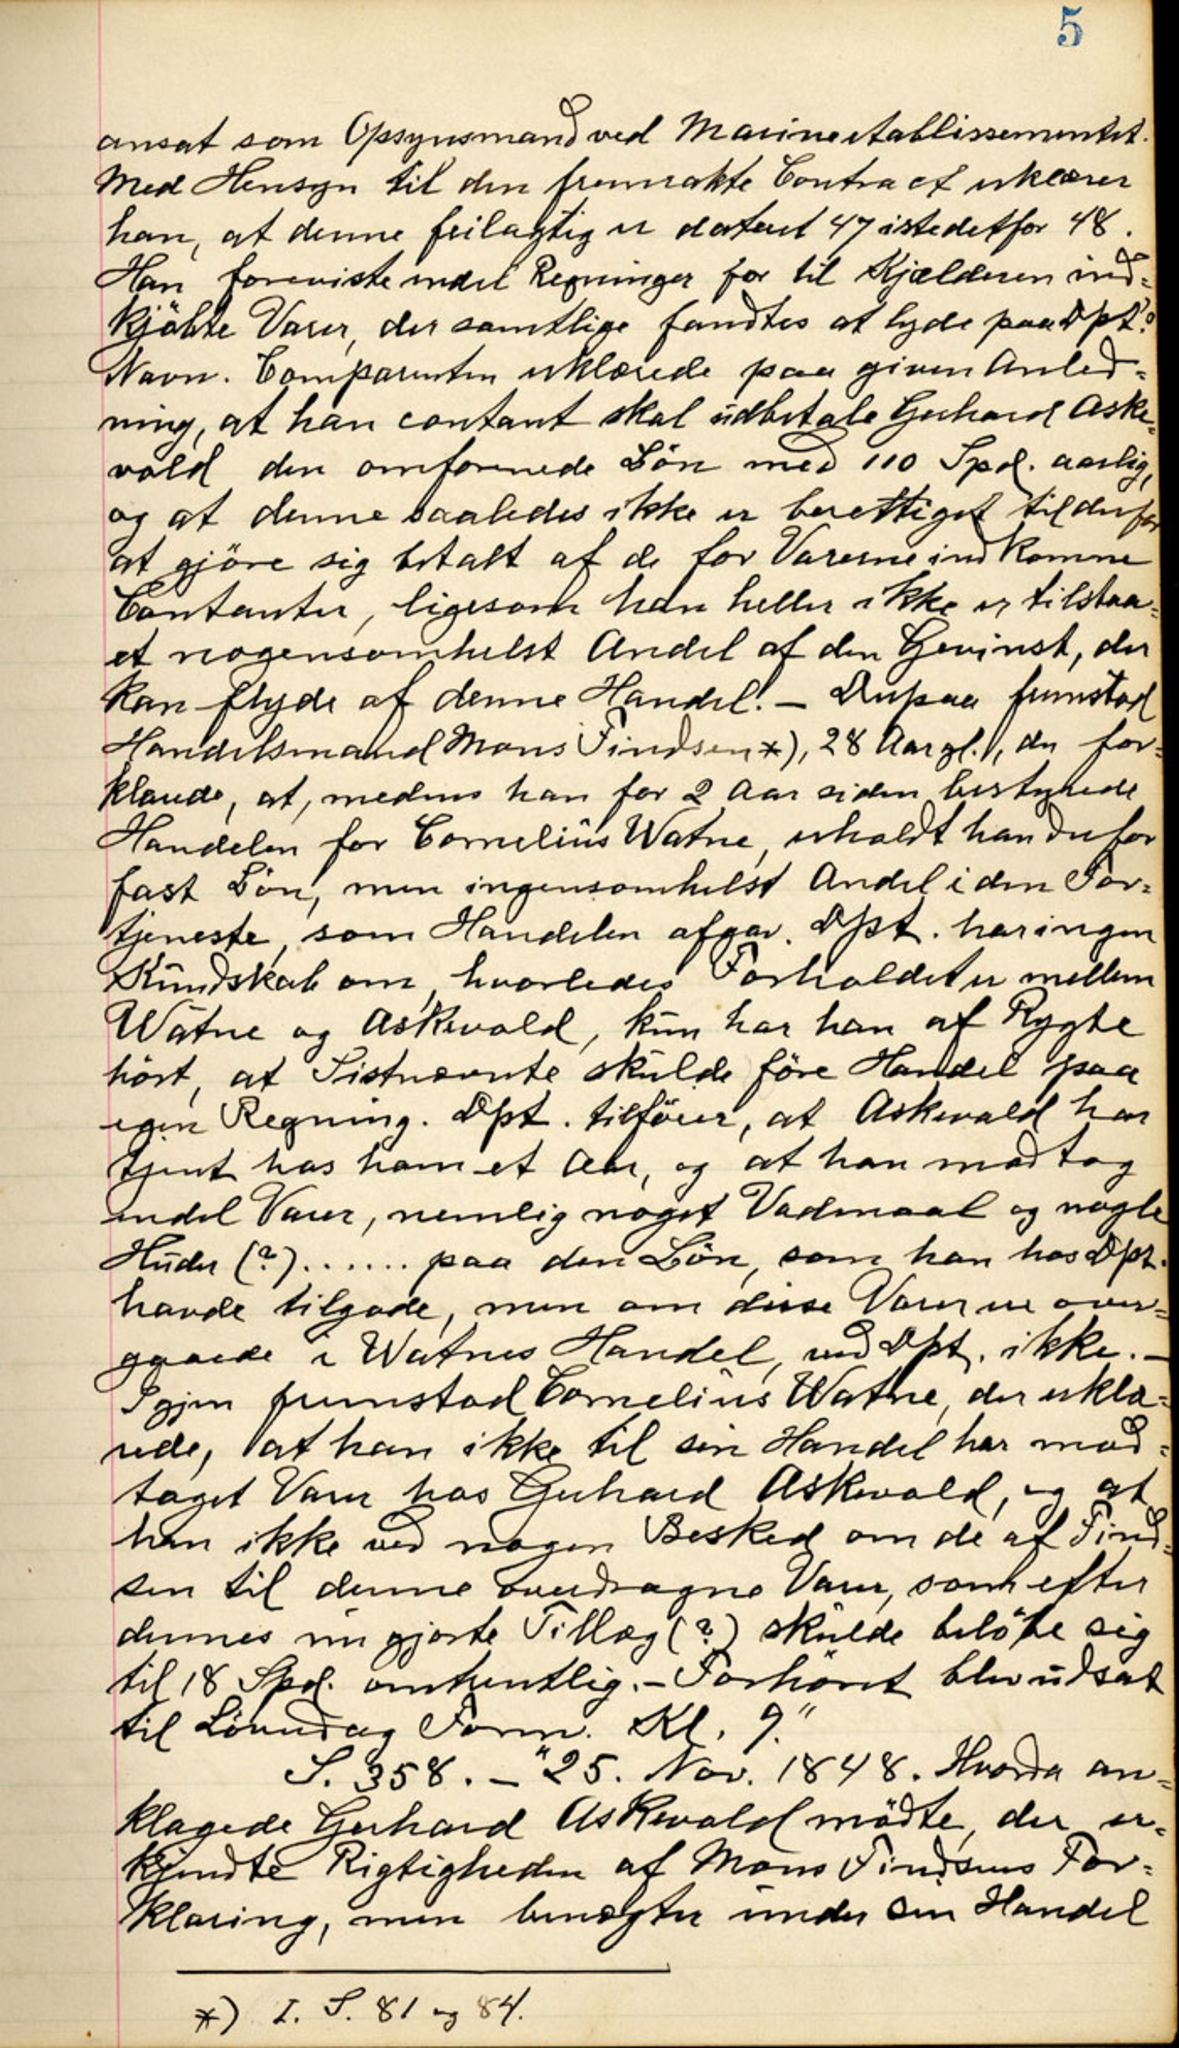 5
ansat som Opsynsmand ved Marineetablissementet.
Med Hensyn til den fremrakte Contract erklærer
han, at denne feilagtig er dateret 47 istedetfor 48.
Han foreviste endel Regninger for til Kjælderen ind-
kjöbte Varer, der samtlige fandtes at lyde paa Dpt:s
Navn. Comparenten erklærede paa given Anled-
ning, at han contant skal udbetale Gerhard Aske-
vold den omforenede Lön med 110 Spd. aarlig,
og at denne saaledes ikke er berettiget til derfor
at gjöre sig betalt af de for Varerne indkomne
Contanter, ligesom han heller ikke er tilstaa-
et nogensomhelst Andel af den Gevinst, der
kan flyde af denne Handel. – Derpaa fremstod
Handelsmand Mons Findsen *), 28 Aar gl., der for-
klarede, at, medens han for 2 Aar siden bestyrede
Handelen for Cornelius Watne, erholdt han derfor
fast Lön, men ingensomhelst Andel i den For-
tjeneste, som Handelen afgav. Dpt. har ingen
Kundskab om, hvorledes Forholdet er mellem
Watne og Askevold, kun har han af Rygte
hört, at Sistnævnte skulde före Handel paa
egen Regning. Dpt. tilföier, at Askevold har
tjent hos ham et Aar, og at han modtog
endel Varer, nemlig noget Vadmaal og nogle
Huder (?) ...... paa den Lön, som han hos Dpt.
havde tilgode, men om disse Varer er over-
gaaede i Watnes Handel, ved Dpt. ikke. –
Igjen fremstod Cornelius Watne, der erklæ-
rede, at han ikke til sin Handel har mod-
taget Varer hos Gerhard Askevold, og at
han ikke ved nogen Besked om de af Find-
sen til denne overdragne Varer, som efter
dennes nu gjorte Tillæg (?) skulde belöbe sig
til 18 Spd. omtrentlig. – Forhöret blev udsat
til Löverdag Form. Kl. 9."
S. 358. – "25. Nov. 1848. Hvorda an-
klagede Gerhard Askevold mödte, der er-
kjendte Rigtigheden af Mons Findsens For-
klaring, men benægter under sin Handel
*) I. S. 81 og 84.